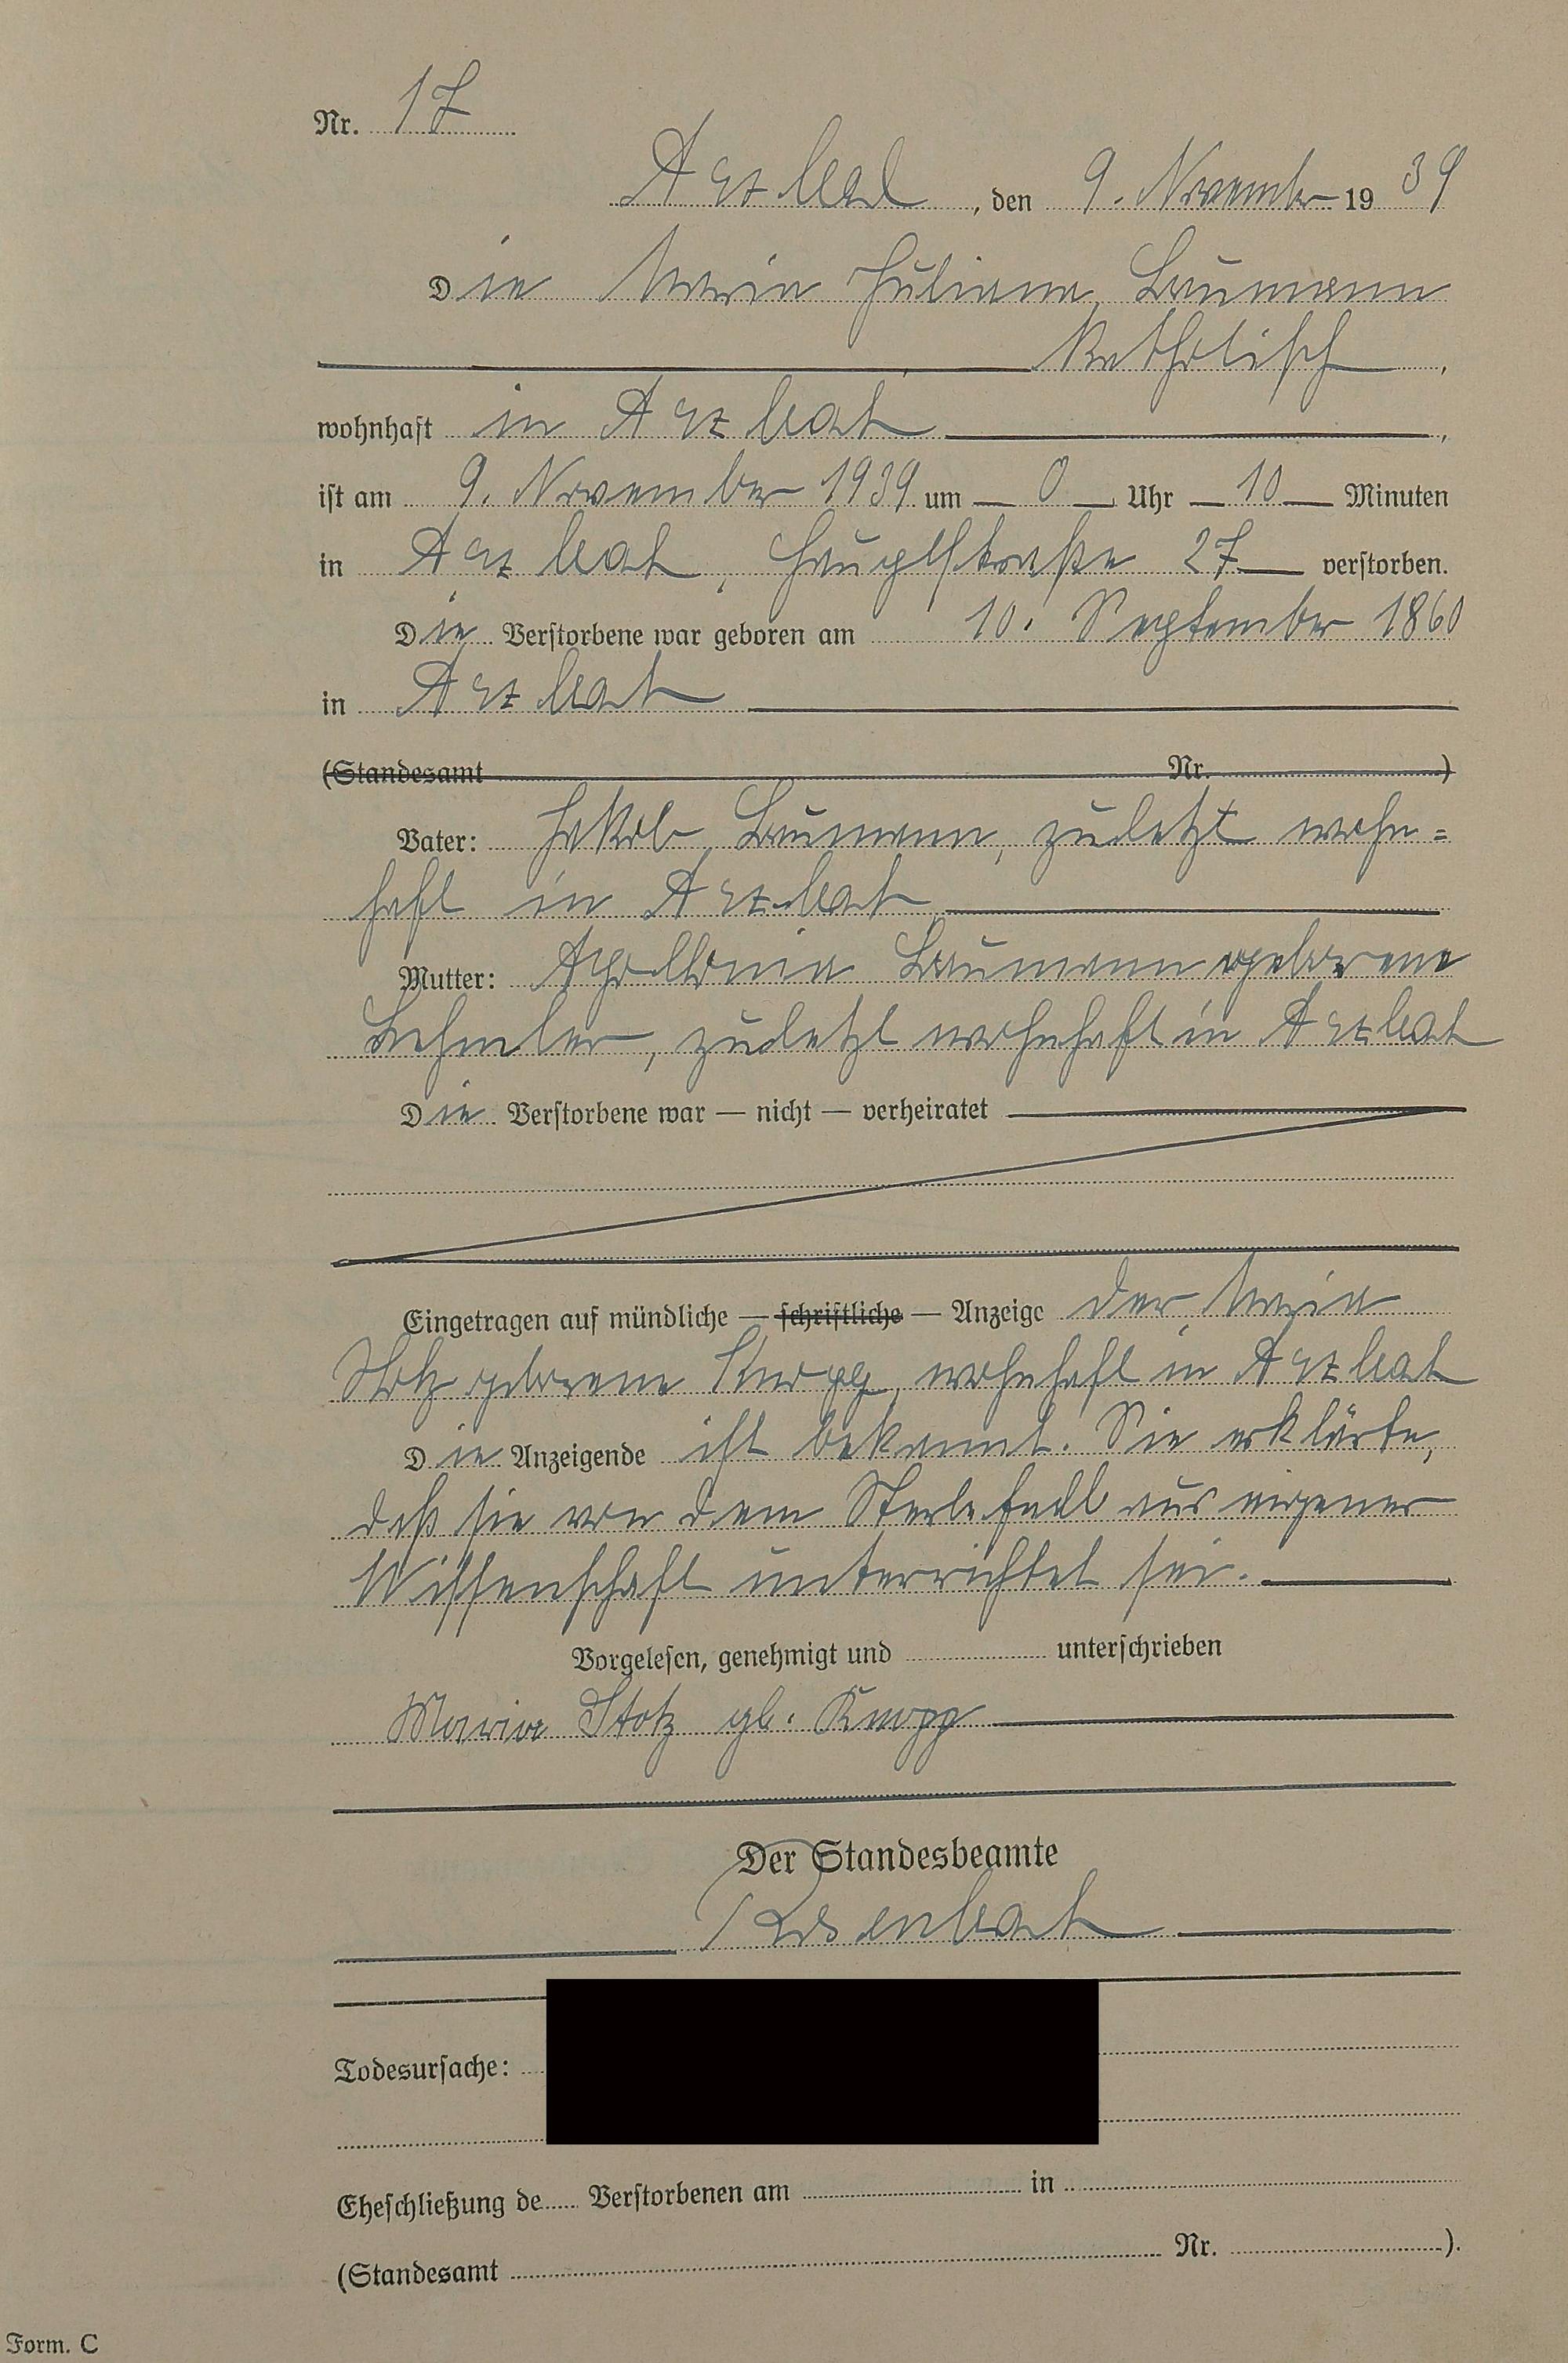 Nr. 17
Arzbach, den 9. November 1939
Die Maria Juliana Baumann
katholisch,
wohnhaft in Arzbach,
ist am 9. November 1939 um — 0 — Uhr — 10 — Minuten
in Arzbach, Hauptstraße 27 verstorben.
Die Verstorbene war geboren am 10. September 1860
in Arzbach
(Standesamt Nr. )
Vater: Jakob Baumann, zuletzt wohn=
haft in Arzbach
Mutter: Apollonia Baumann geborene
Lehmler, zuletzt wohnhaft in Arzbach
Die Verstorbene war — nicht — verheiratet
Eingetragen auf mündliche — schriftliche — Anzeige der Maria
Stotz geborene Knopp, wohnhaft in Arzbach
Die Anzeigende ist bekannt. Sie erklärte,
daß sie von dem Sterbefall aus eigener
Wissenschaft unterrichtet sei.
Vorgelesen, genehmigt und unterschrieben
Maria Stotz gb. Knopp
Der Standesbeamte
Rosenbach
Todesursache:
Eheschließung de Verstorbenen am in
(Standesamt Nr. ).
Form. C